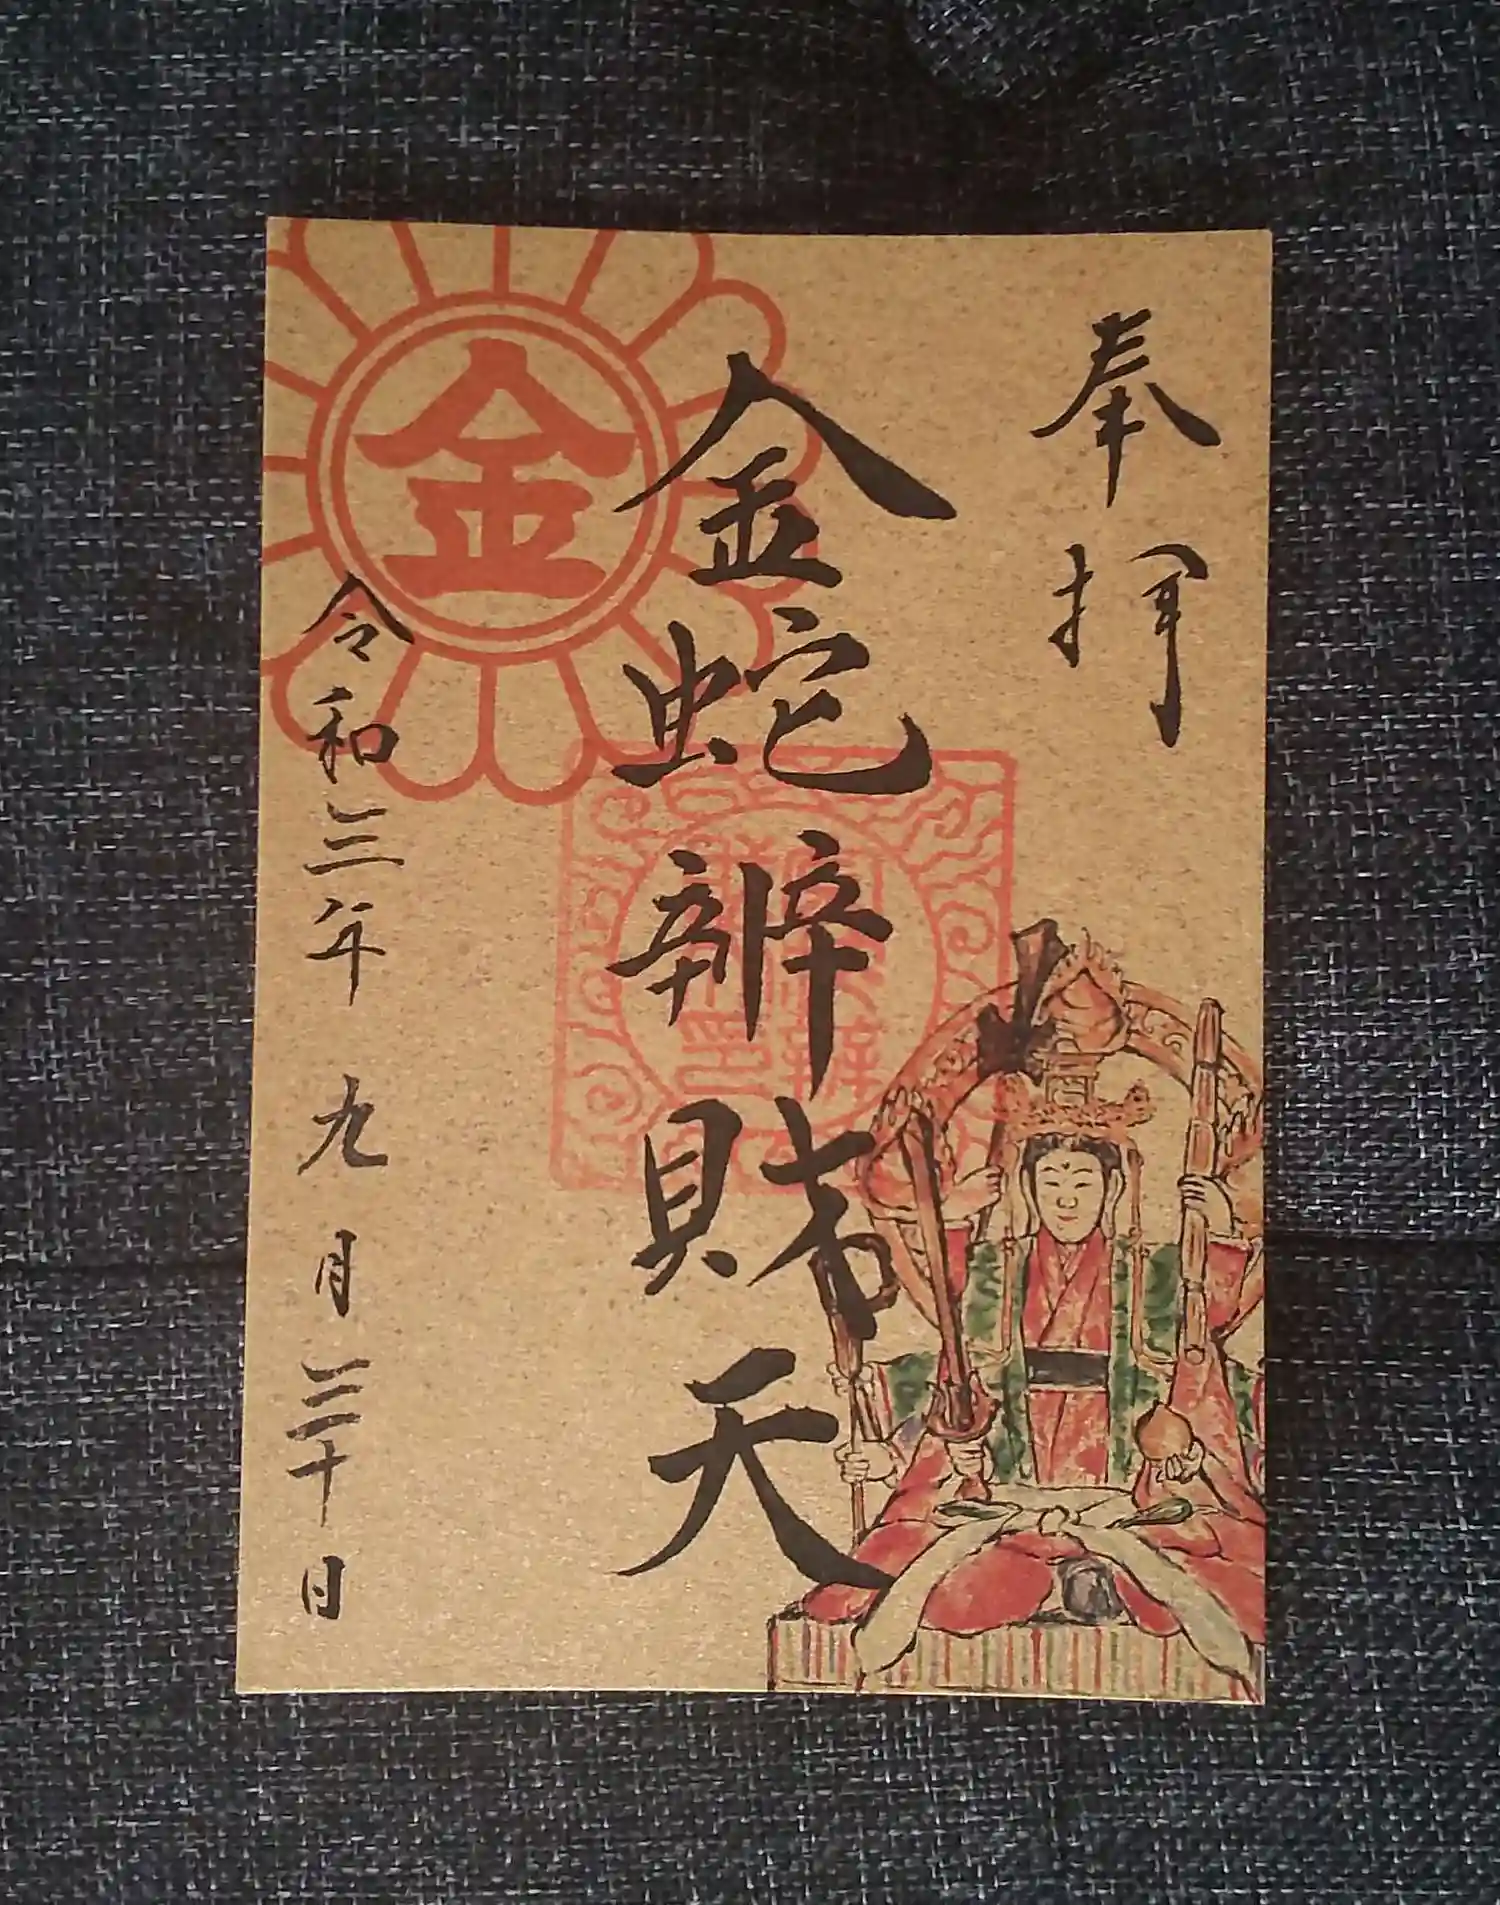 奉拝
金蛇辨財天
金
令和三年九月三十日